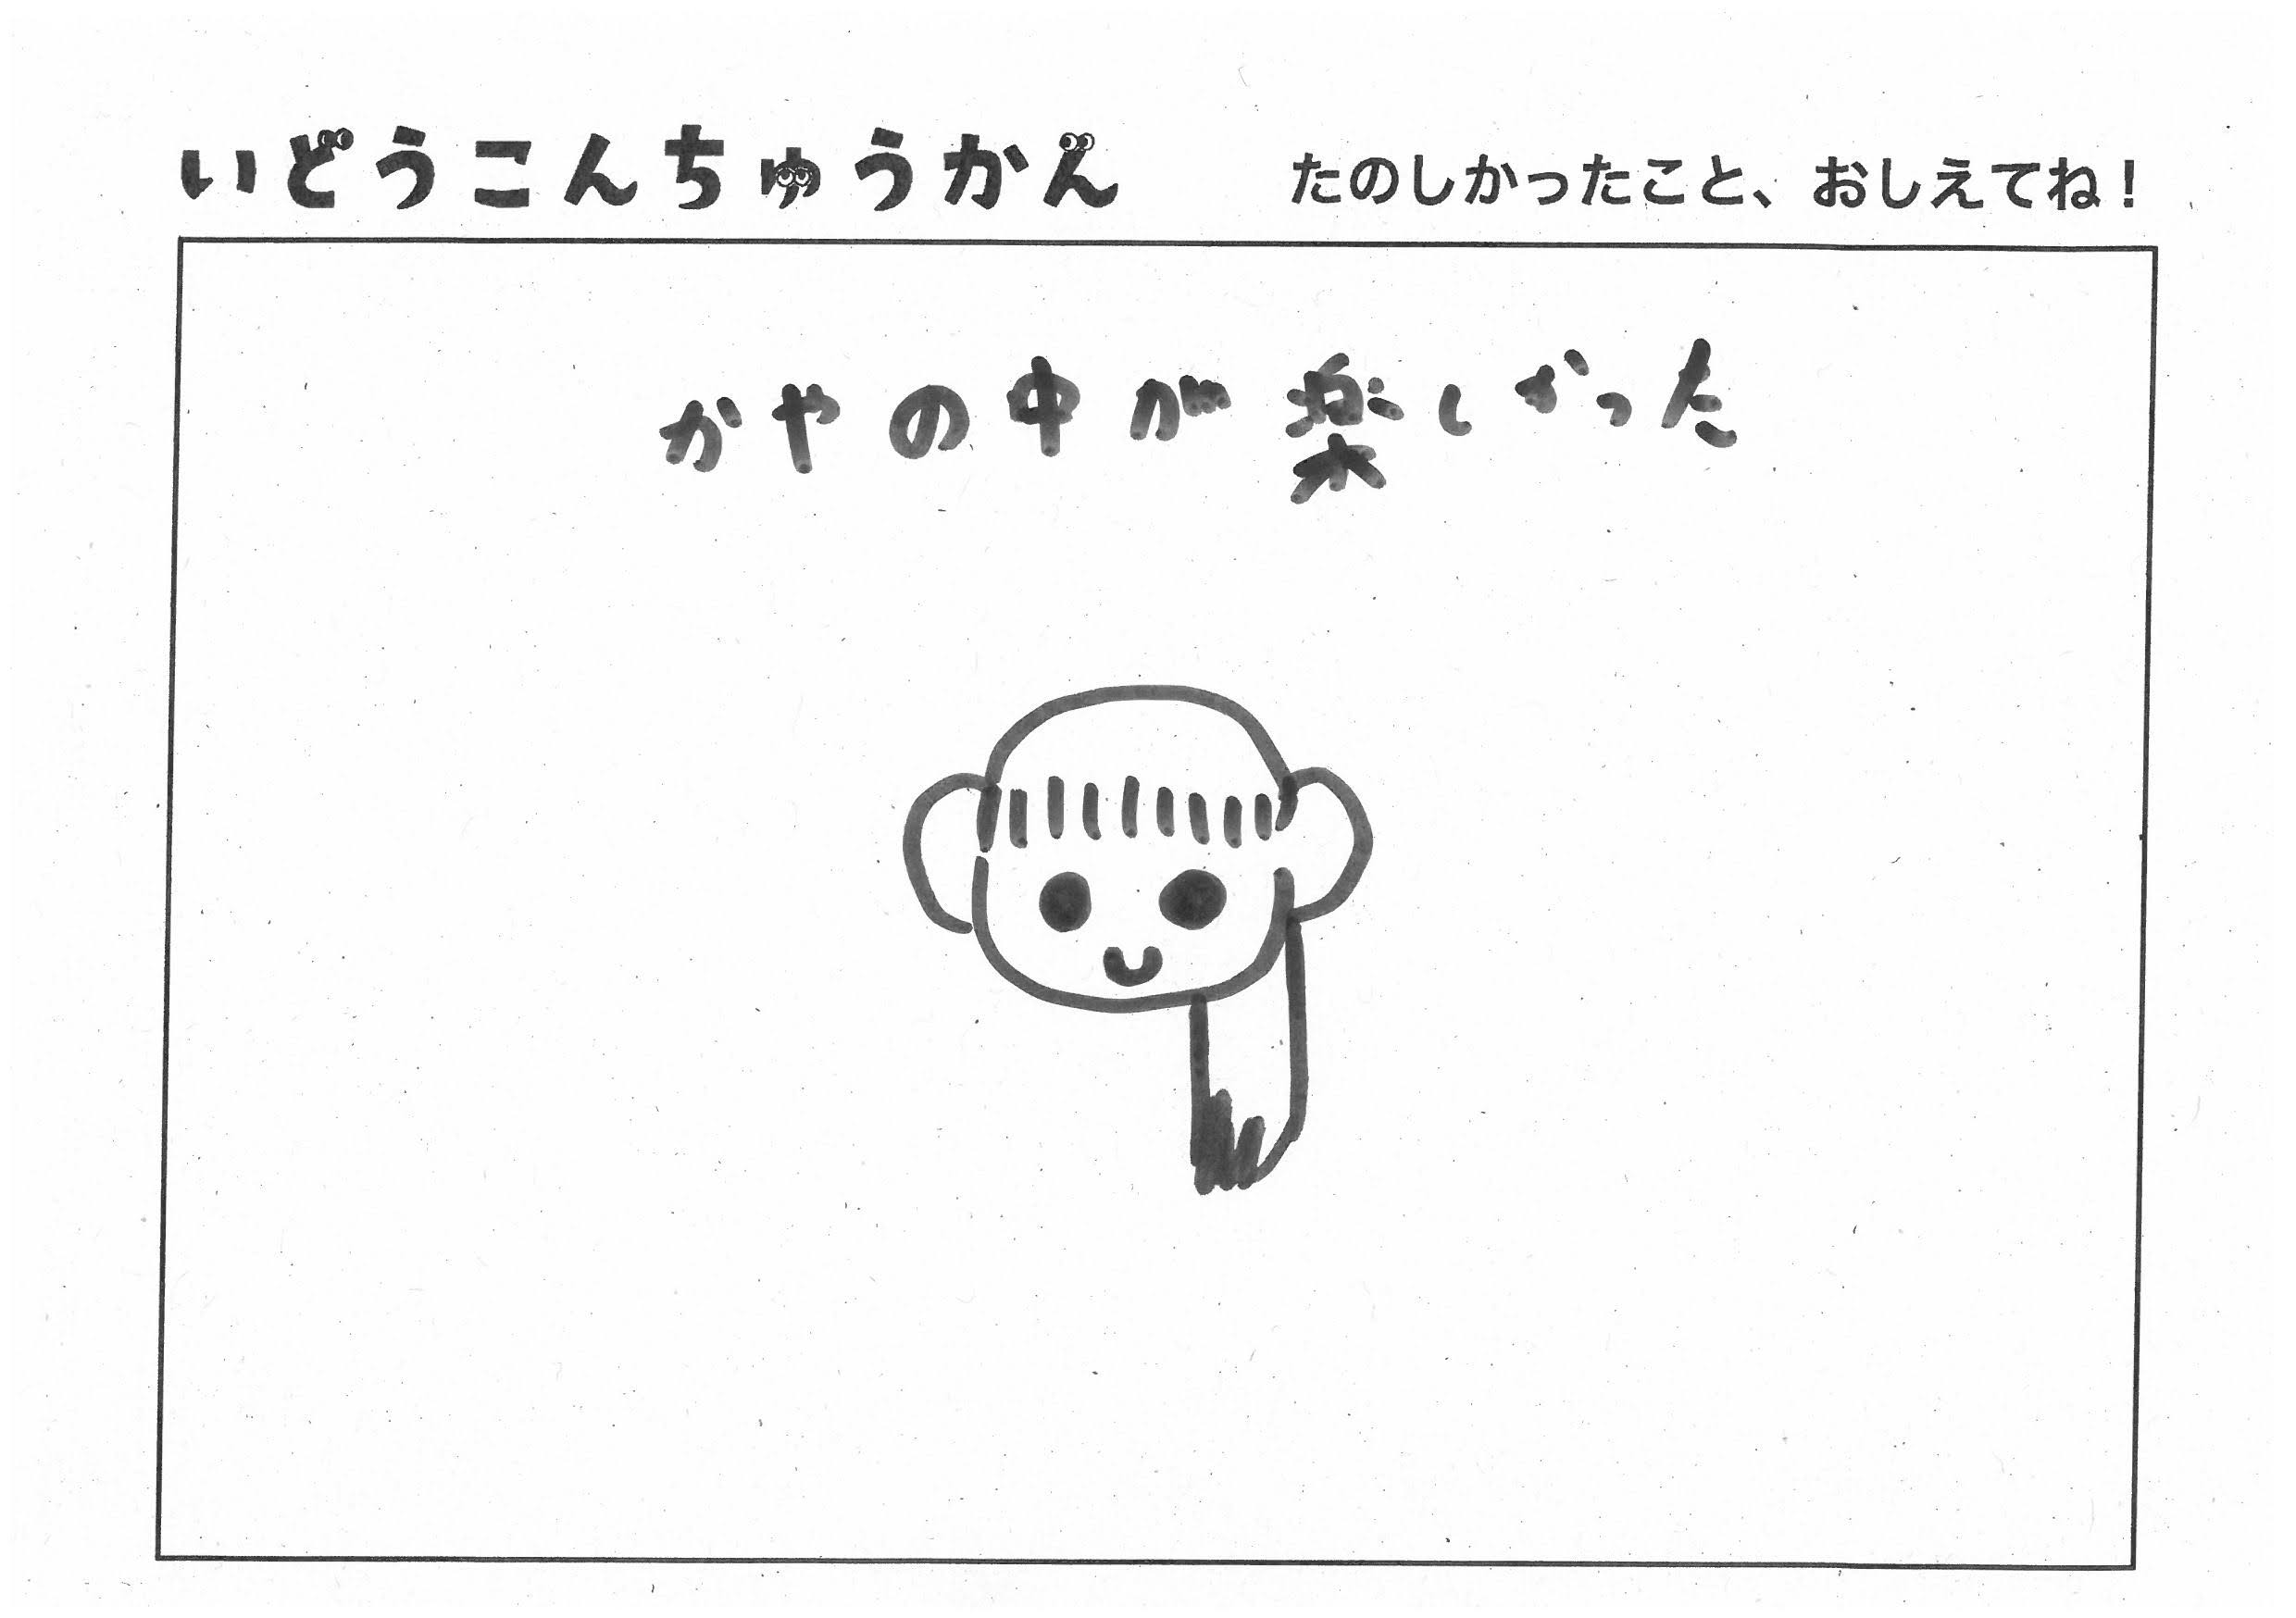 いどうこんちゅうかん たのしかったこと、おしえてね!
かやの中が楽しかった